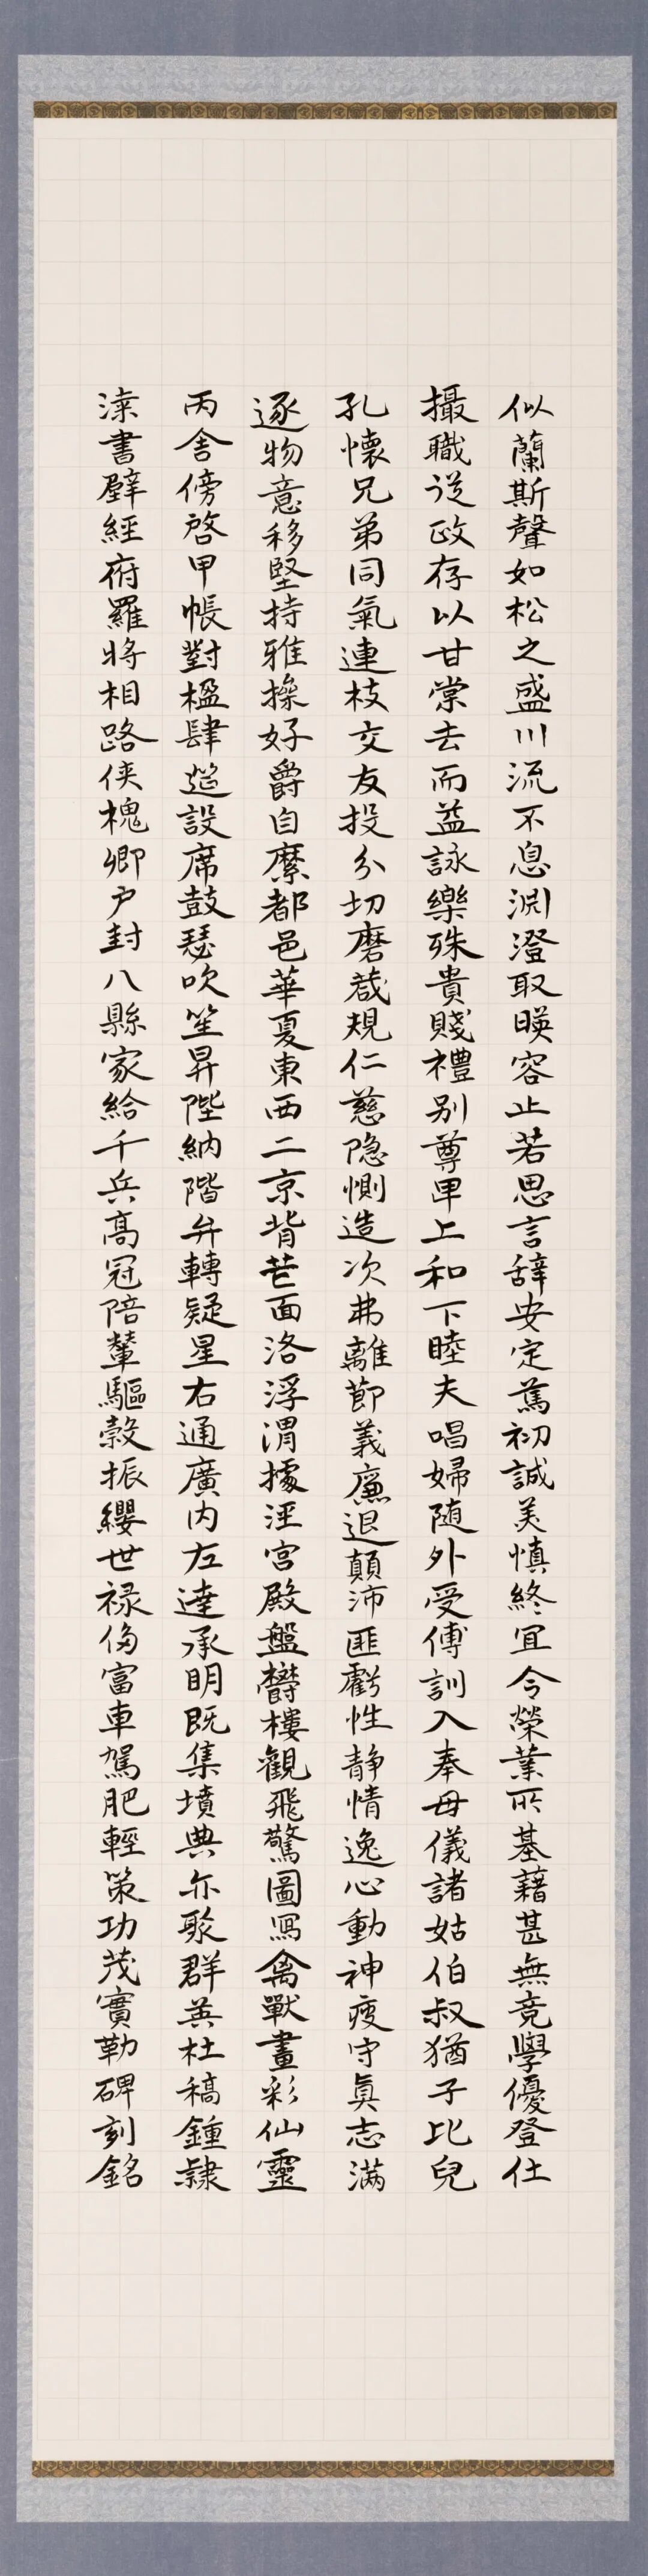 似蘭斯聲如松之盛川流不息淵澄取暎容止若思言辭安定篤初誠美慎終宜令榮業所基藉甚無竟學優登仕
攝職従政存以甘棠去而益詠樂殊貴賤禮別尊卑上和下睦夫唱婦随外受傅訓入奉母儀諸姑伯叔猶子比兒
孔懷兄弟同氣連枝交友投分切磨葴規仁慈隐惻造次弗離節義廉退顛沛匪虧性静情逸心動神疲守真志満
逐物意移堅持雅操好爵自縻都邑華夏東西二京背芒面洛浮渭據涇宮殿盤欝樓觀飛驚圖寫禽獸畫彩仙靈
丙舍傍啓甲帳對楹肆莚設席鼓瑟吹笙昇陛納階弁轉疑星右通廣内左達承明既集墳典亦聚群英杜稿鍾隷
漆書壁經府羅将相路侠槐卿户封八縣家給千兵高冠陪輦驅轂振纓世禄侈富車駕肥輕策功茂實勒碑刻銘